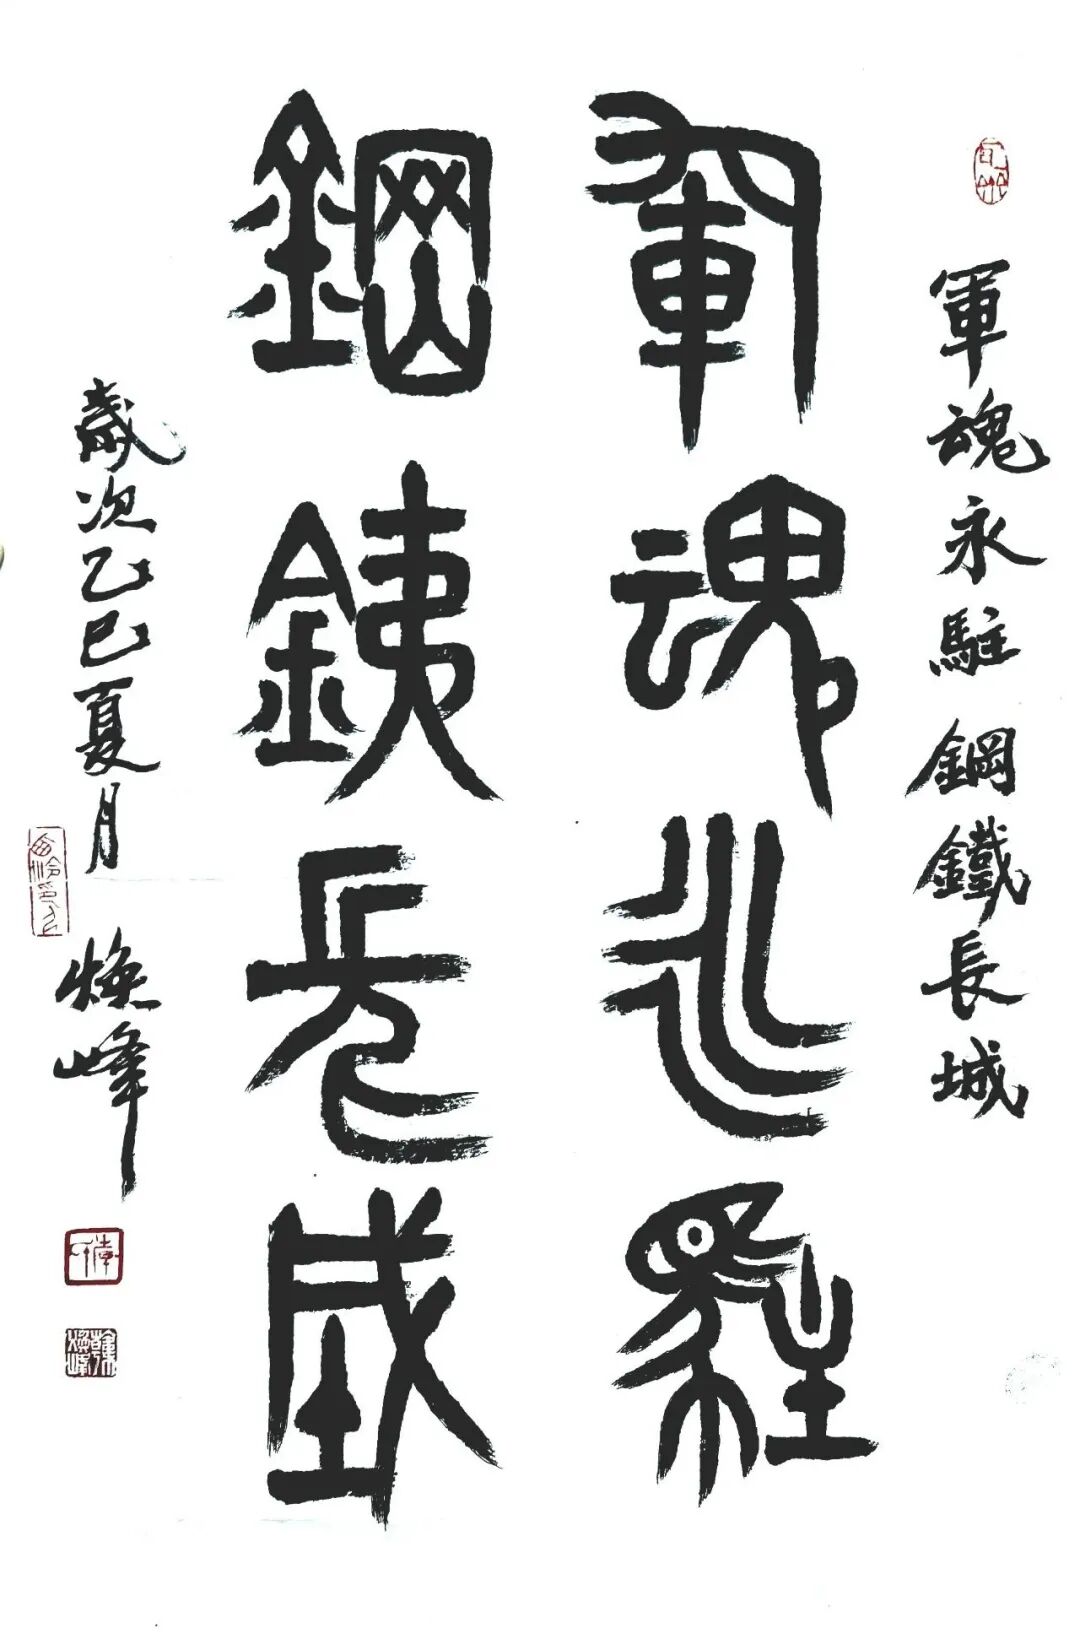 軍魂永駐鋼鐵長城
軍魂永駐
鋼銕長城
歲次乙巳夏月 煥峰
韓煥峰